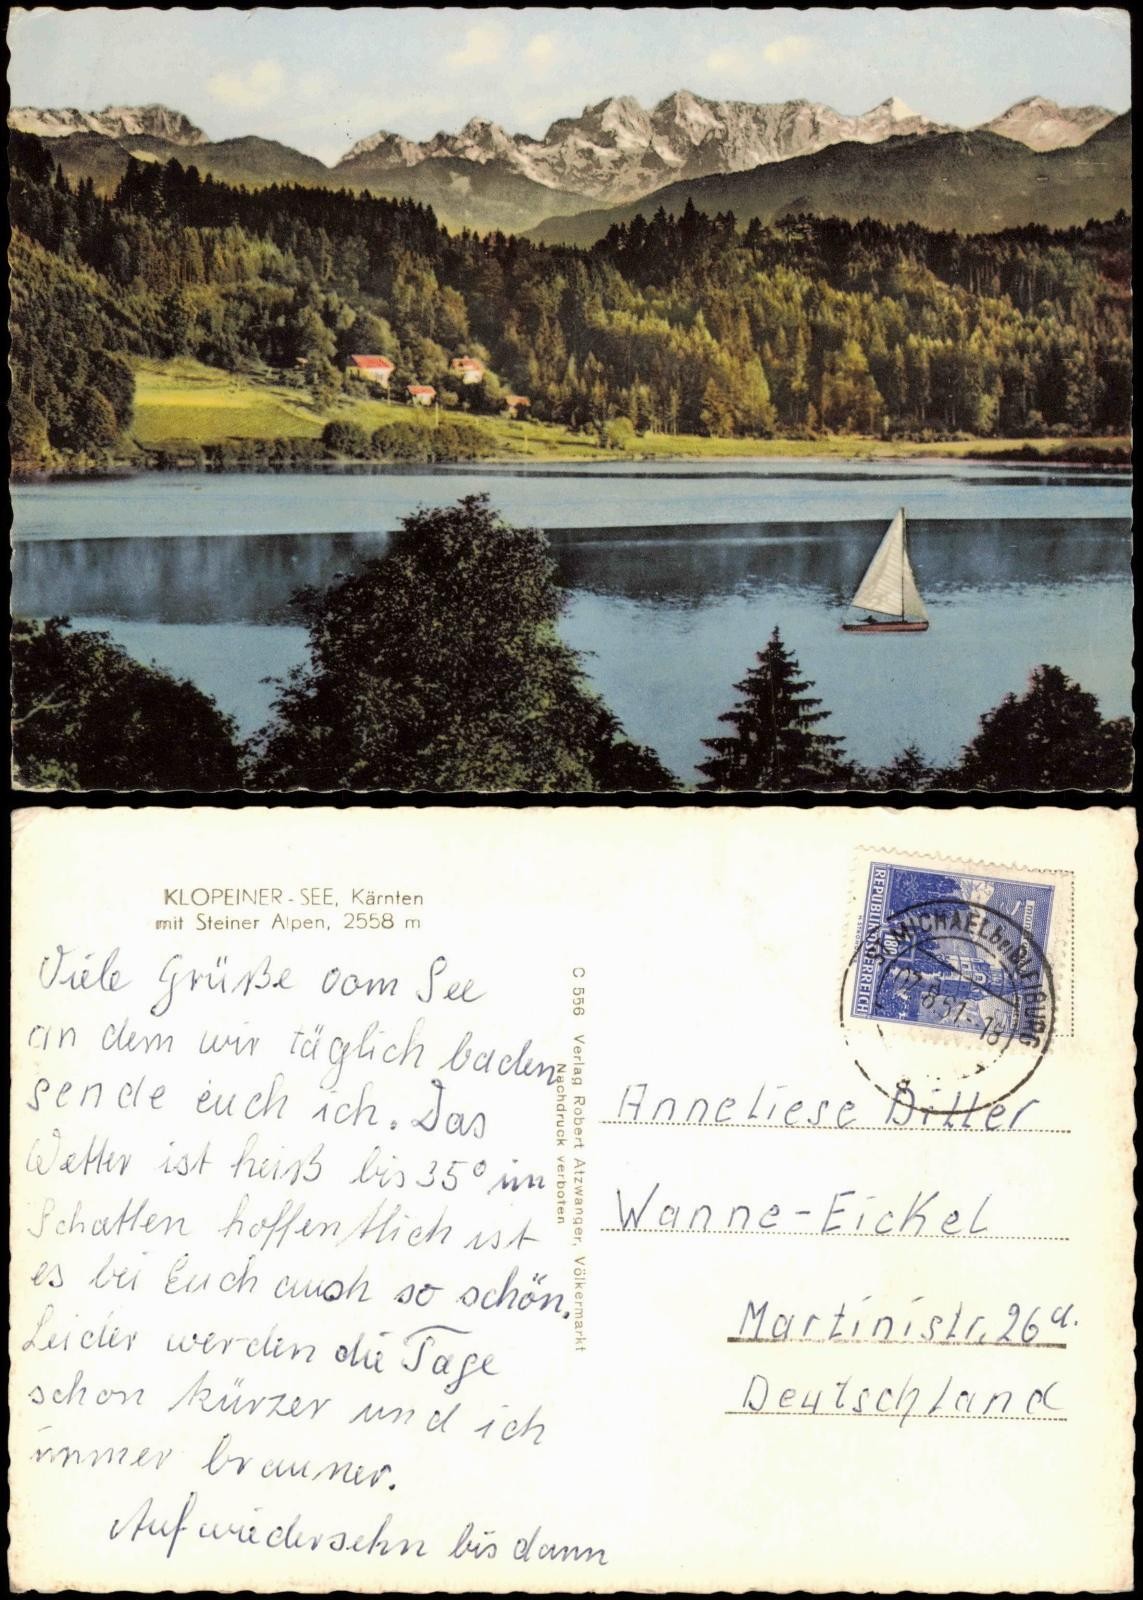 KLOPEINER-SEE, Kärnten
mit Steiner Alpen, 2558 m
Viele Grüße vom See
an dem wir täglich baden
sende euch ich. Das
Wetter ist heiß bis 35° im
Schatten hoffentlich ist
es bei Euch auch so schön.
Leider werden die Tage
schon kürzer und ich
immer brauner.
Auf wiedersehn bis dann
C 556 Verlag Robert Atzwanger, Völkermarkt
Nachdruck verboten
REPUBLIK ÖSTERREICH
MICHAEL bei BLEIBURG
Anneliese Ditter
Wanne-Eickel
Martinistr. 26a.
Deutschland